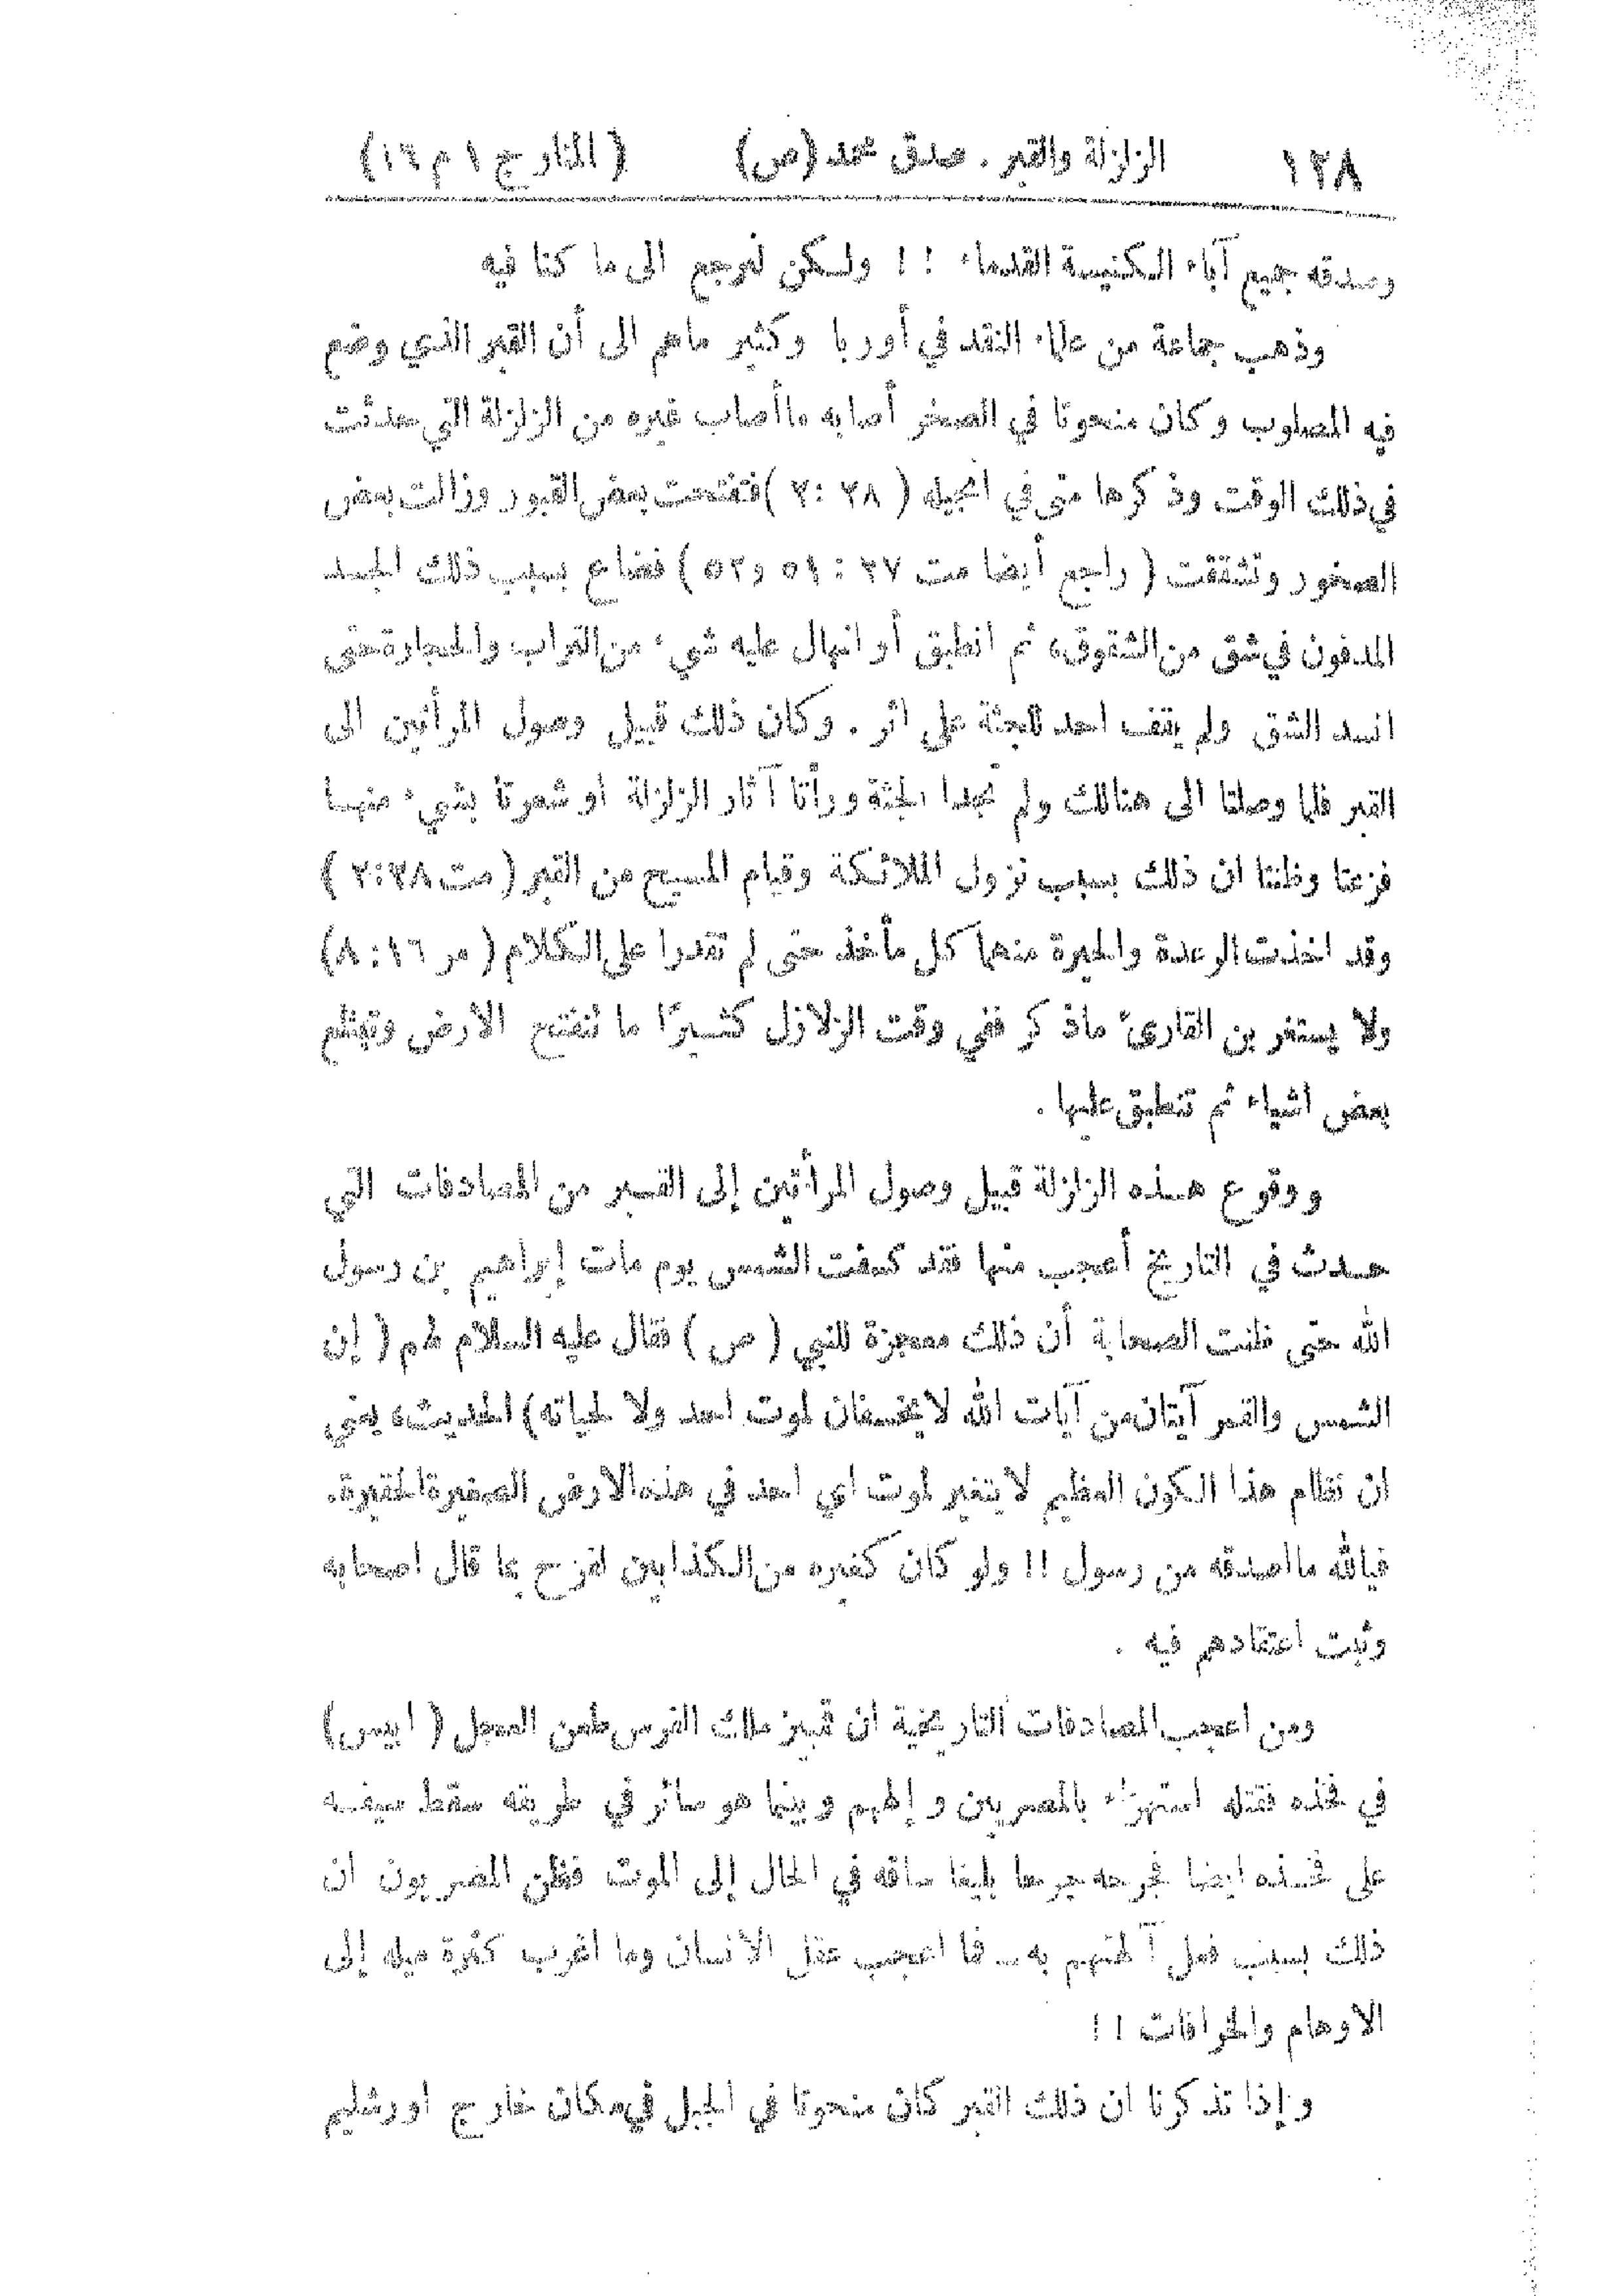 ١٢٨ الزلزلة والقبر . صدق محمد (ص) ( المنار ج ١ م ١٦)
وصدقه جميع آباء الكنيسة القدماء ! ! ولكن لنرجع الى ما كنا فيه
وذهب جماعة من علماء النقد في أوربا وكثير ماهم الى أن القبر الذي وضع
فيه المصلوب وكان منحوتا في الصخر أصابه ماأصاب غيره من الزلزلة التي حدثت
في ذلك الوقت وذكرها متى في انجيله ( ٢٨ : ٢ ) فتفتحت بعض القبور وزالت بعض
الصخور وتشققت ( راجع أيضا مت ٢٧ : ٥١ و ٥٢ ) فضاع بسبب ذلك الجسد
المدفون في شق من الشقوق، ثم انطبق أو انهال عليه شيء من التراب والحجارة حتى
انسد الشق ولم يقف احد للجثة على اثر . وكان ذلك قبيل وصول المرأتين الى
القبر فلما وصلتا الى هنالك ولم تجدا الجثة ورأتا آثار الزلزلة او شعرتا بشيء منها
فزعتا وظنتا ان ذلك بسبب نزول الملائكة وقيام المسيح من القبر ( مت ٢٨ : ٢ )
وقد اخذت الرعدة والحيرة منهما كل مأخذ حتى لم تقدرا على الكلام ( مر ١٦ : ٨ )
ولا يستغربن القارئ ماذكر ففي وقت الزلازل كثيرًا ما تنفتح الارض وتبتلع
بعض اشياء ثم تنطبق عليها .
ووقوع هذه الزلزلة قبيل وصول المرأتين إلى القبر من المصادفات التي
حدث في التاريخ أعجب منها فقد كسفت الشمس يوم مات إبراهيم بن رسول
الله حتى ظنت الصحابة أن ذلك معجزة للنبي ( ص ) فقال عليه السلام لهم ( إن
الشمس والقمر آيتان من آيات الله لا يخسفان لموت احد ولا لحياته ) الحديث، يعني
ان نظام هذا الكون العظيم لا يتغير لموت اي احد في هذه الارض الصغيرة الحقيرة.
فيالله مااصدقه من رسول !! ولو كان كغيره من الكذابين لفرح بما قال اصحابه
وثبت اعتقادهم فيه .
ومن اعجب المصادفات التاريخية ان قمبيز ملك الفرس طعن العجل ( ابيس)
في فخذه فقتله استهزاء بالمصريين وإلههم وبينما هو سائر في طريقه سقط سيفه
على فخذه ايضا فجرحه جرحا بليغا ساقه في الحال إلى الموت فظن المصريون ان
ذلك بسبب فعل آلهتهم به ــ فما اعجب عقل الانسان وما اغرب كثرة ميله إلى
الاوهام والخرافات ! !
وإذا تذكرنا ان ذلك القبر كان منحوتا في الجبل في مكان خارج اورشليم